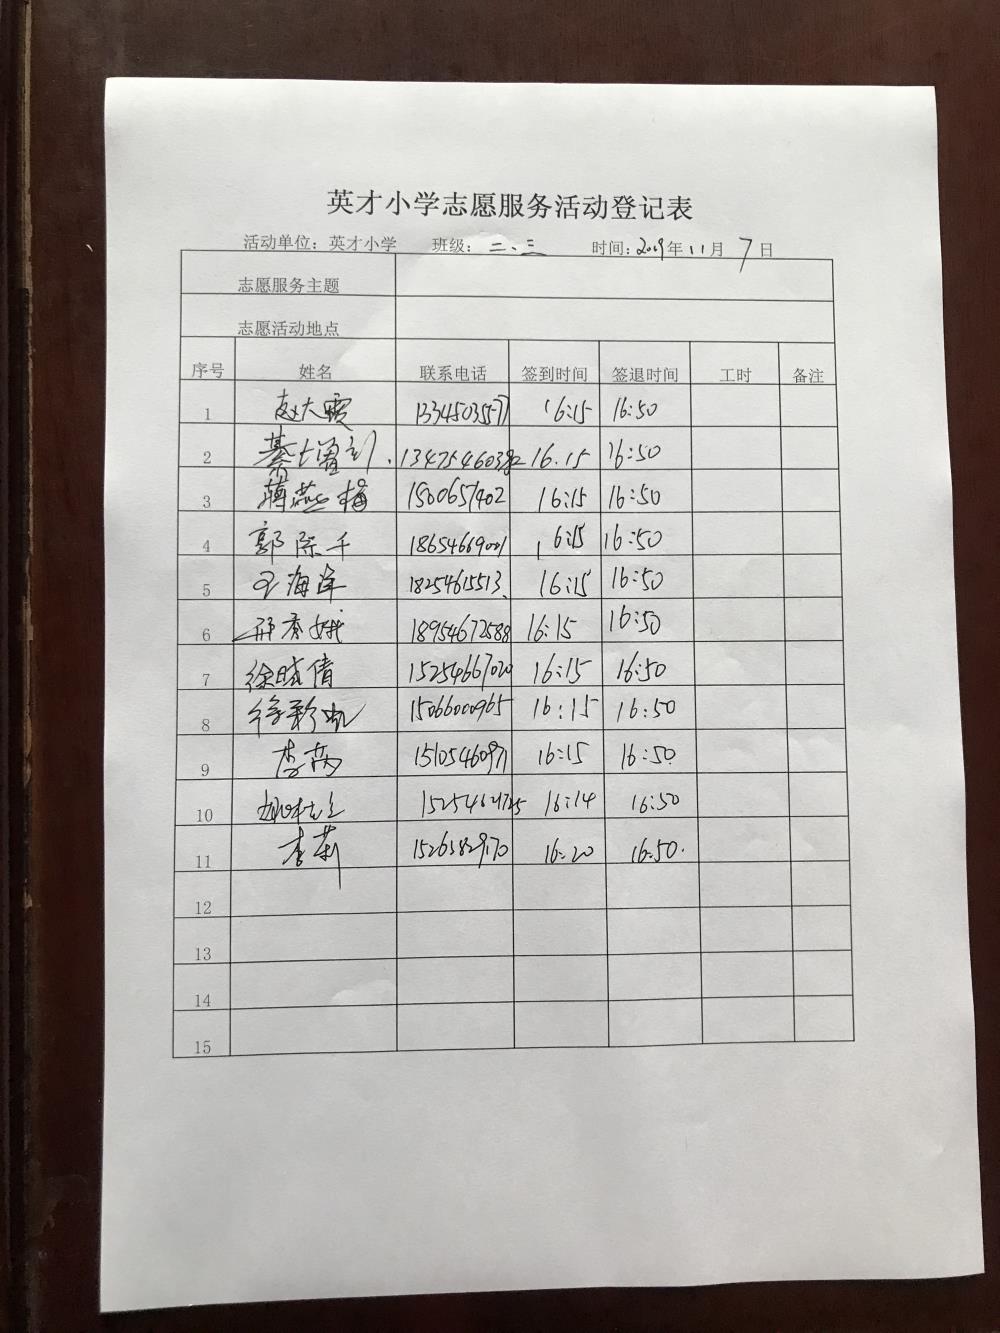 英才小学志愿服务活动登记表
活动单位：英才小学 班级：二、三 时间：2019年11月7日
志愿服务主题
志愿活动地点
序号 姓名 联系电话 签到时间 签退时间 工时 备注
1 赵大霞 13345035577 16:15 16:50
2 16.15 16:50
3 蒋燕梅 1500657402 16:15 16:50
4 郭际千 18654669001 16:15 16:50
5 王海洋 18254615513 16:15 16:50
6 邢秀娥 18954672588 16:15 16:50
7 徐晓倩 15254667020 16:15 16:50
8 徐彩虹 15066000965 16:15 16:50
9 李芮 15105460971 16:15 16:50
10 16:14 16:50
11 李莉 16:20 16:50
12
13
14
15